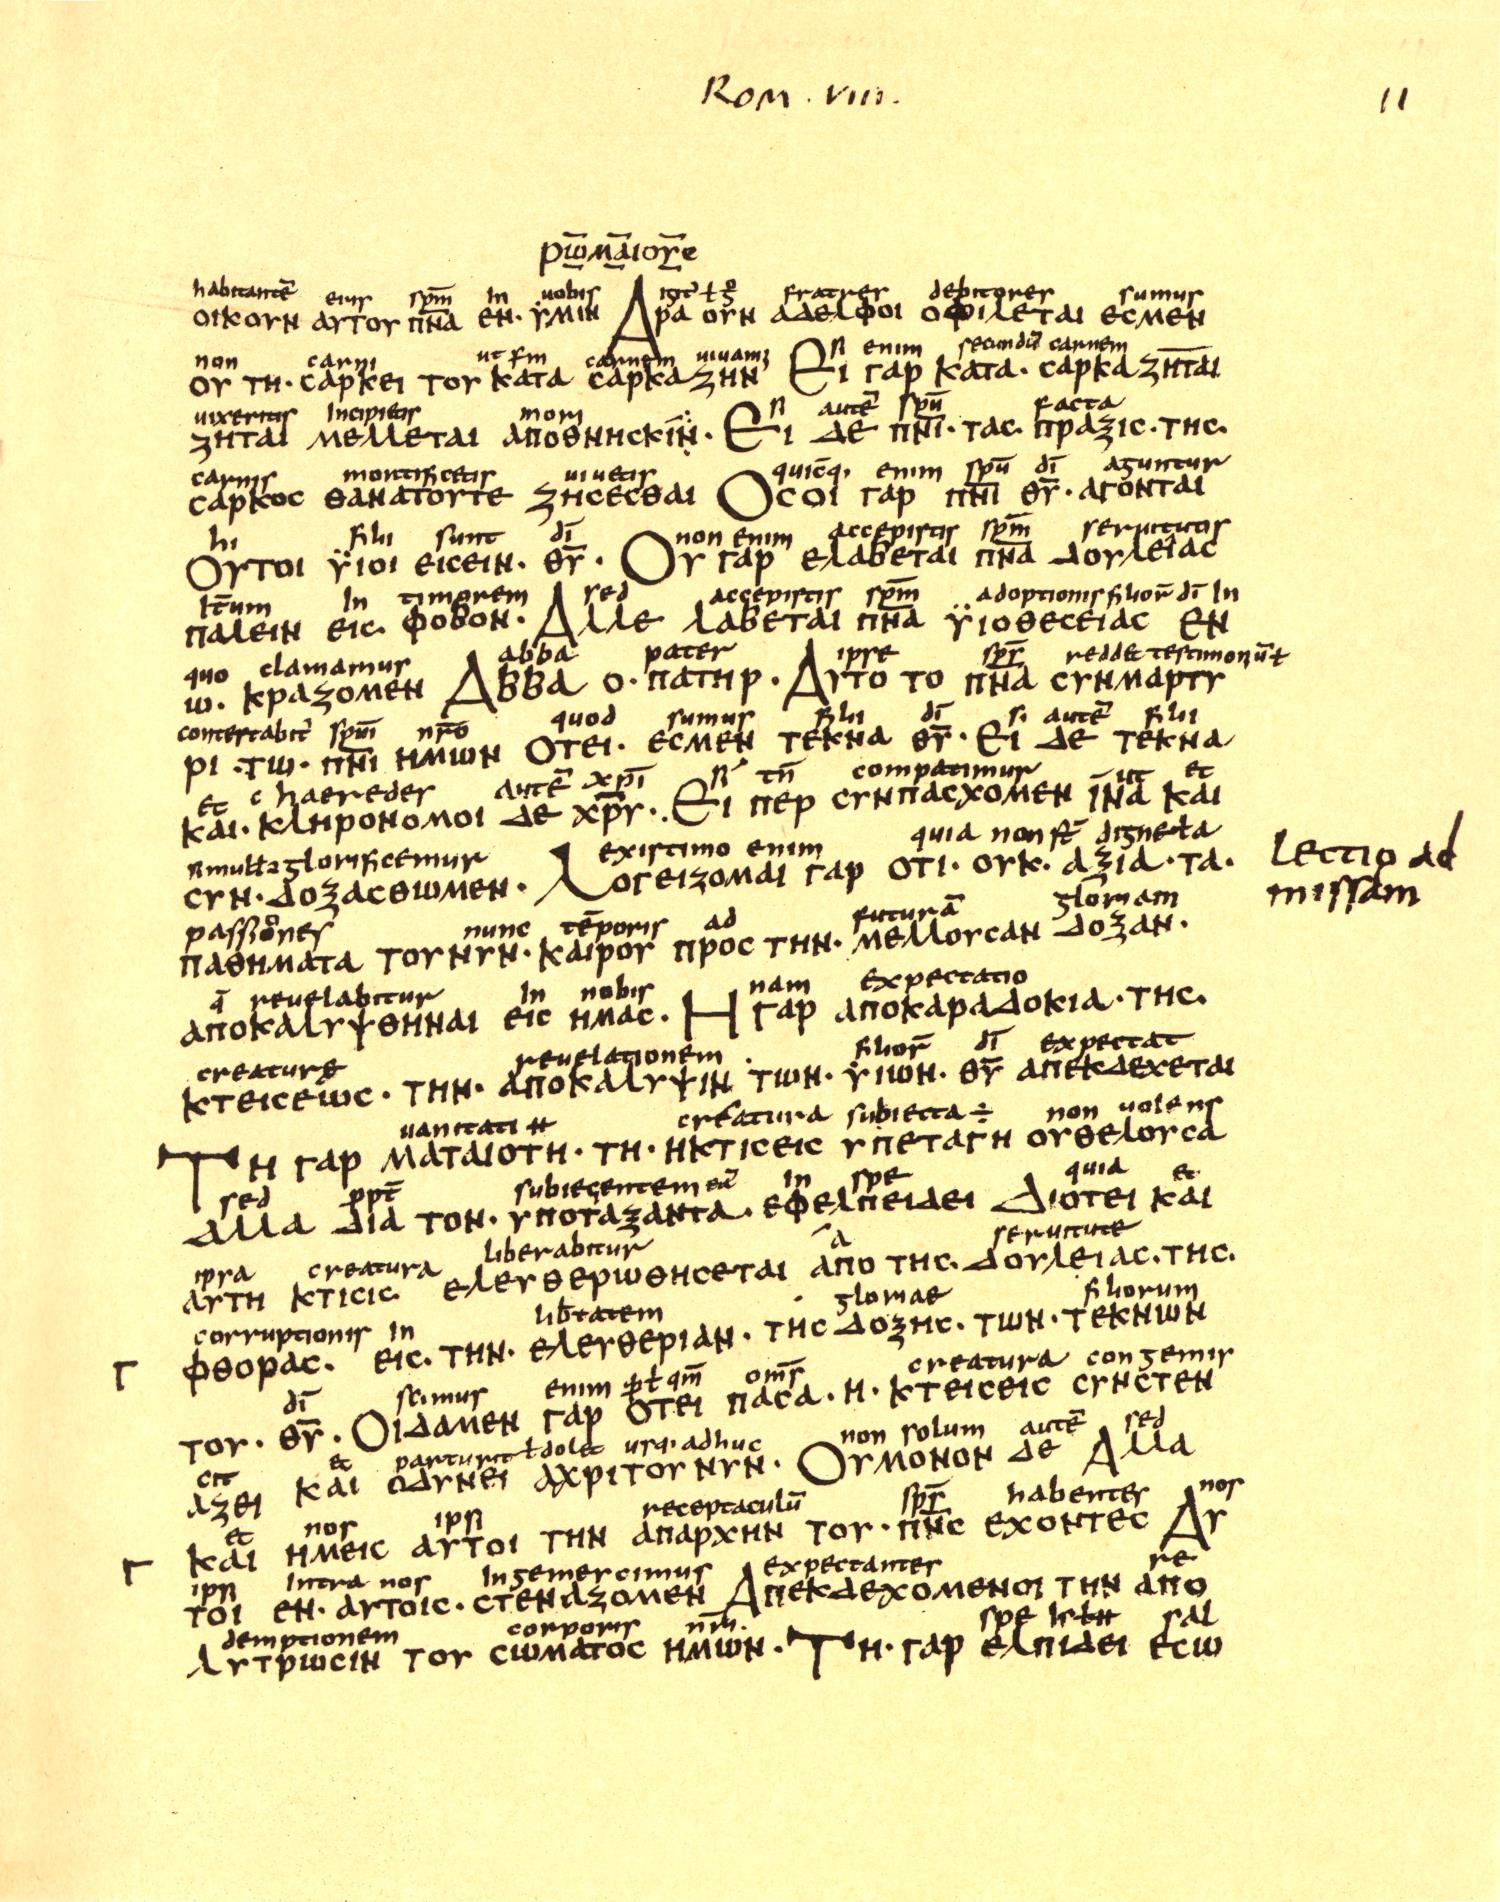 Rom. VIII.
11
ρω̅μα̅ιου̅ς
habitante̅ eius sp̅m in uobis igit̅ ł g̊ fratres debitores sumus
οικουν αυτου π̅ν̅α εν· ϋμιν Αρα ουν αδελφοι οφιλεται εσμεν
non carni ut scdm carnem uiuam; si enim secundu̅ carnem
ου τη· σαρκει του κατα σαρκα ζην Ει γαρ κατα· σαρκα ζηται
uixeritis incipietis mori si aute̅ sp̅u facta
ζηται μελλεται αποθνησκιν̅· Ει δε π̅ν̅ι· τας· πραξις· της·
carnis mortificetis uiuetis quicq̅· enim sp̅u d̅i aguntur
σαρκος θανατουτε ζησεσθαι Οσοι γαρ π̅ν̅ι θ̅υ̅· αγονται
hi filii sunt d̅i non enim accepistis sp̅m seruitutis
Ουτοι ϋιοι εισειν· θ̅υ̅· Ου γαρ ελαβεται π̅ν̅α δουλειας
it̅um in timorem sed accepistis sp̅m adoptionis filior̅ d̅i in
παλειν εις· φοβον· Αλλε λαβεται π̅ν̅α ϋιοθεσειας εν
quo clamamus abba pater ipse sp̅s reddet testimoniu̅ ł
ω· κραζομεν Αββα ο· πατηρ· Αυτο το π̅ν̅α συνμαρτυ
contestabit̅ sp̅ui n̅ro quod sumus filii d̅i si aute̅ filii
ρι· τω· π̅ν̅ι ημων οτει· εσμεν τεκνα θ̅υ̅· Ει δε τεκνα
et c haeredes aute̅ xp̅i si t̅n compatimur ut et
και· κληρονομοι δε χ̅ρ̅υ̅· Ει περ συνπασχομεν ϊνα και
simul glorificemur existimo enim quia non s̅t digne ł a
συν· δοξασθωμεν· Λογειζομαι γαρ οτι· ουκ· αξια· τα·
Lectio ad
missam
passiones nunc te̅poris ad futura̅ gloriam
παθηματα του νυν· καιρου προς την· μελλουσαν δοξαν·
q̅ reuelabitur in nobis nam expectatio
αποκαλυψθηναι εις ημας· Η γαρ αποκαραδοκια· της·
creature reuelationem filior̅ d̅i expectat
κτεισεως· την· αποκαλυψιν των· ϋιων· θ̅υ̅ απεκδεχεται
uanitati creatura subiecta ÷ non uolens
Τη γαρ ματαιοτη· τη· ηκτισεις υπεταγη ουθελουσα
sed ppt̅ subiecentem ea̅ in spe quia et
αλλα δια τον· υποταξαντα· εφελπειδει Διοτει και
ipsa creatura liberabitur a seruitute
αυτη κτισις ελευθερωθησεται απο της· δουλειας· της·
corruptionis in lib̅tatem gloriae filiorum
Γ φθορας· εις· την· ελευθεριαν· της δοξης· των· τεκνων
d̅i scimus enim ꝑ ł qm̅ om̅s creatura congemis
του· θ̅υ̅· Οιδαμεν γαρ οτει πασα· η· κτεισεις συνστεν
cit et parturit ł dolet usq· adhuc non solum aute̅ sed
αζει και ωδυνει αχριτου νυν· Ουμονον δε Αλλα
et nos ipsi receptaculu̅ sp̅s habentes nos
και ημεις αυτοι την απαρχην του· π̅ν̅ς εχοντες Αυ
Γ
ipsi intra nos ingemescimus expectantes re
τοι εν· αυτοις· στεναζομεν Απεκδεχομενοι την απο
demptionem corporis n̅ri· spe sal
λυτρωσιν του σωματος ημων· Τη· γαρ ελπιδει εσω